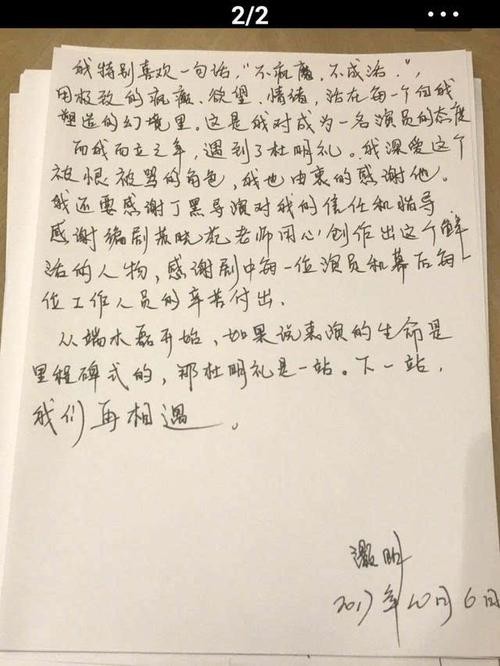 2/2
我特别喜欢一句话，“不疯魔，不成活．”，
用极致的疯癫、欲望、情绪，活在每一个自我
塑造的幻境里。这是我对成为一名演员的态度
而我而立之年，遇到了杜明礼。我深爱这个
被恨被骂的角色，我也由衷的感谢他。
我还要感谢丁黑导演对我的信任和指导
感谢编剧苏晓苑老师用心创作出这个鲜
活的人物，感谢剧中每一位演员和幕后每一
位工作人员的辛苦付出．
从端木磊开始，如果说表演的生命是
里程碑式的，那杜明礼是一站。下一站，
我们再相遇。
2017年10月6日